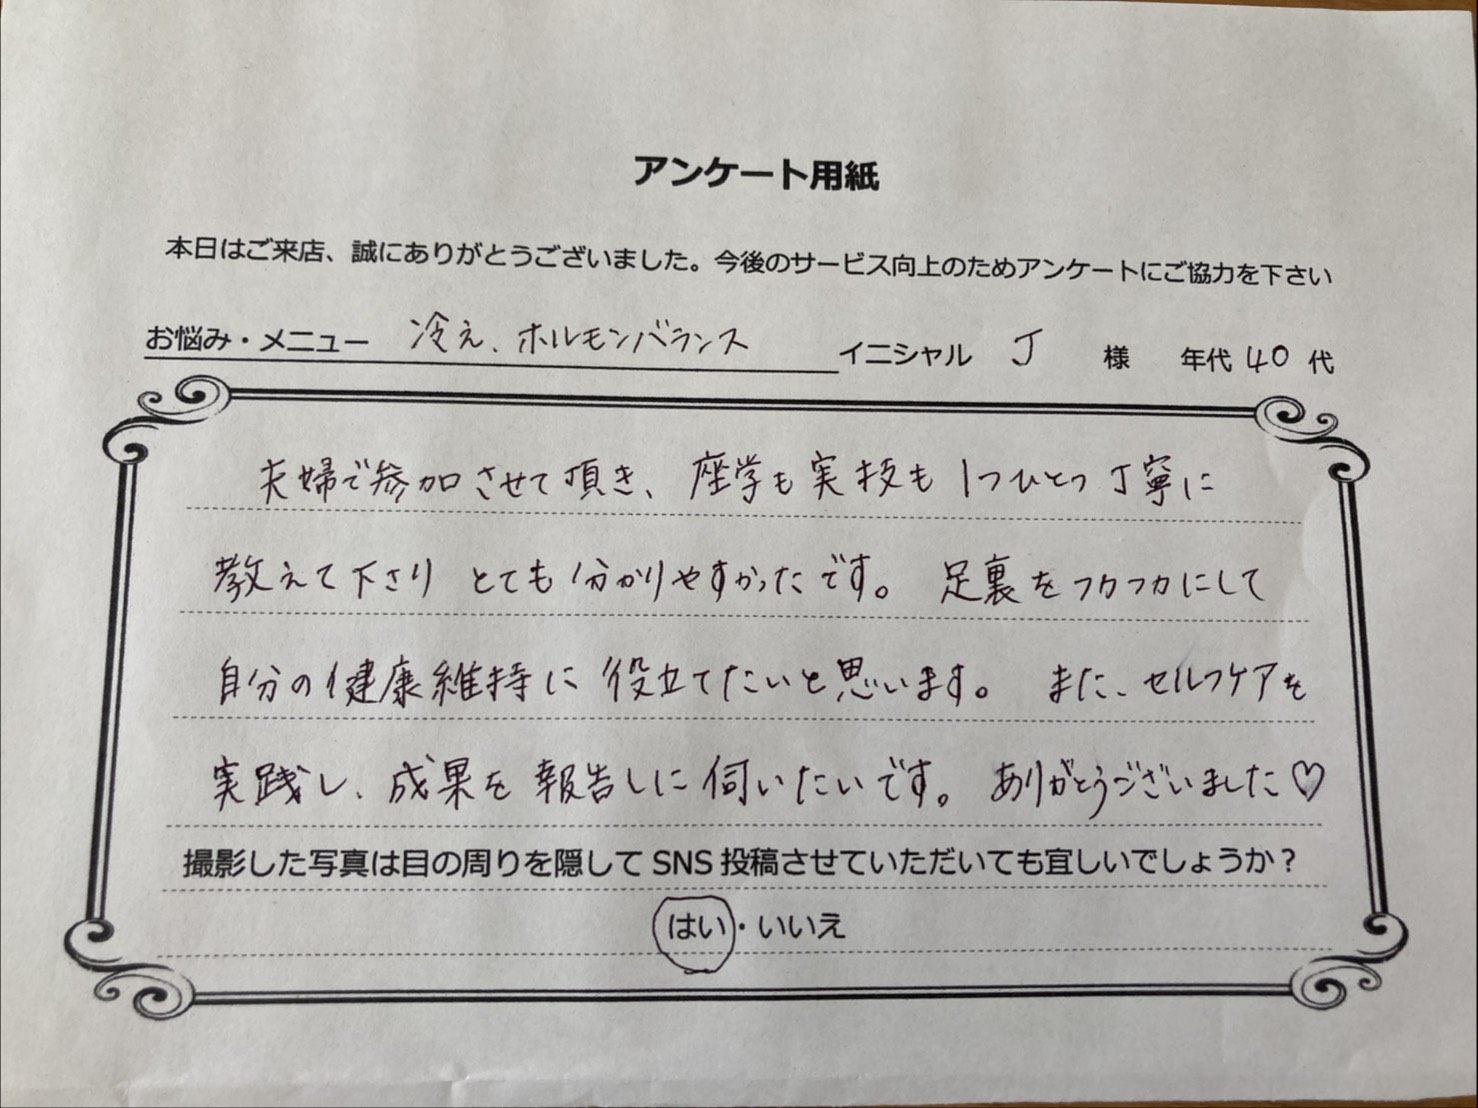 アンケート用紙
本日はご来店、誠にありがとうございました。今後のサービス向上のためアンケートにご協力を下さい
お悩み・メニュー 冷え、ホルモンバランス イニシャル J 様 年代 40 代
夫婦で参加させて頂き、座学も実技も1つひとつ丁寧に
教えて下さりとても分かりやすかったです。足裏をフカフカにして
自分の健康維持に役立てたいと思います。また、セルフケアを
実践し、成果を報告しに伺いたいです。ありがとうございました♡
撮影した写真は目の周りを隠して SNS 投稿させていただいても宜しいでしょうか？
はい・いいえ